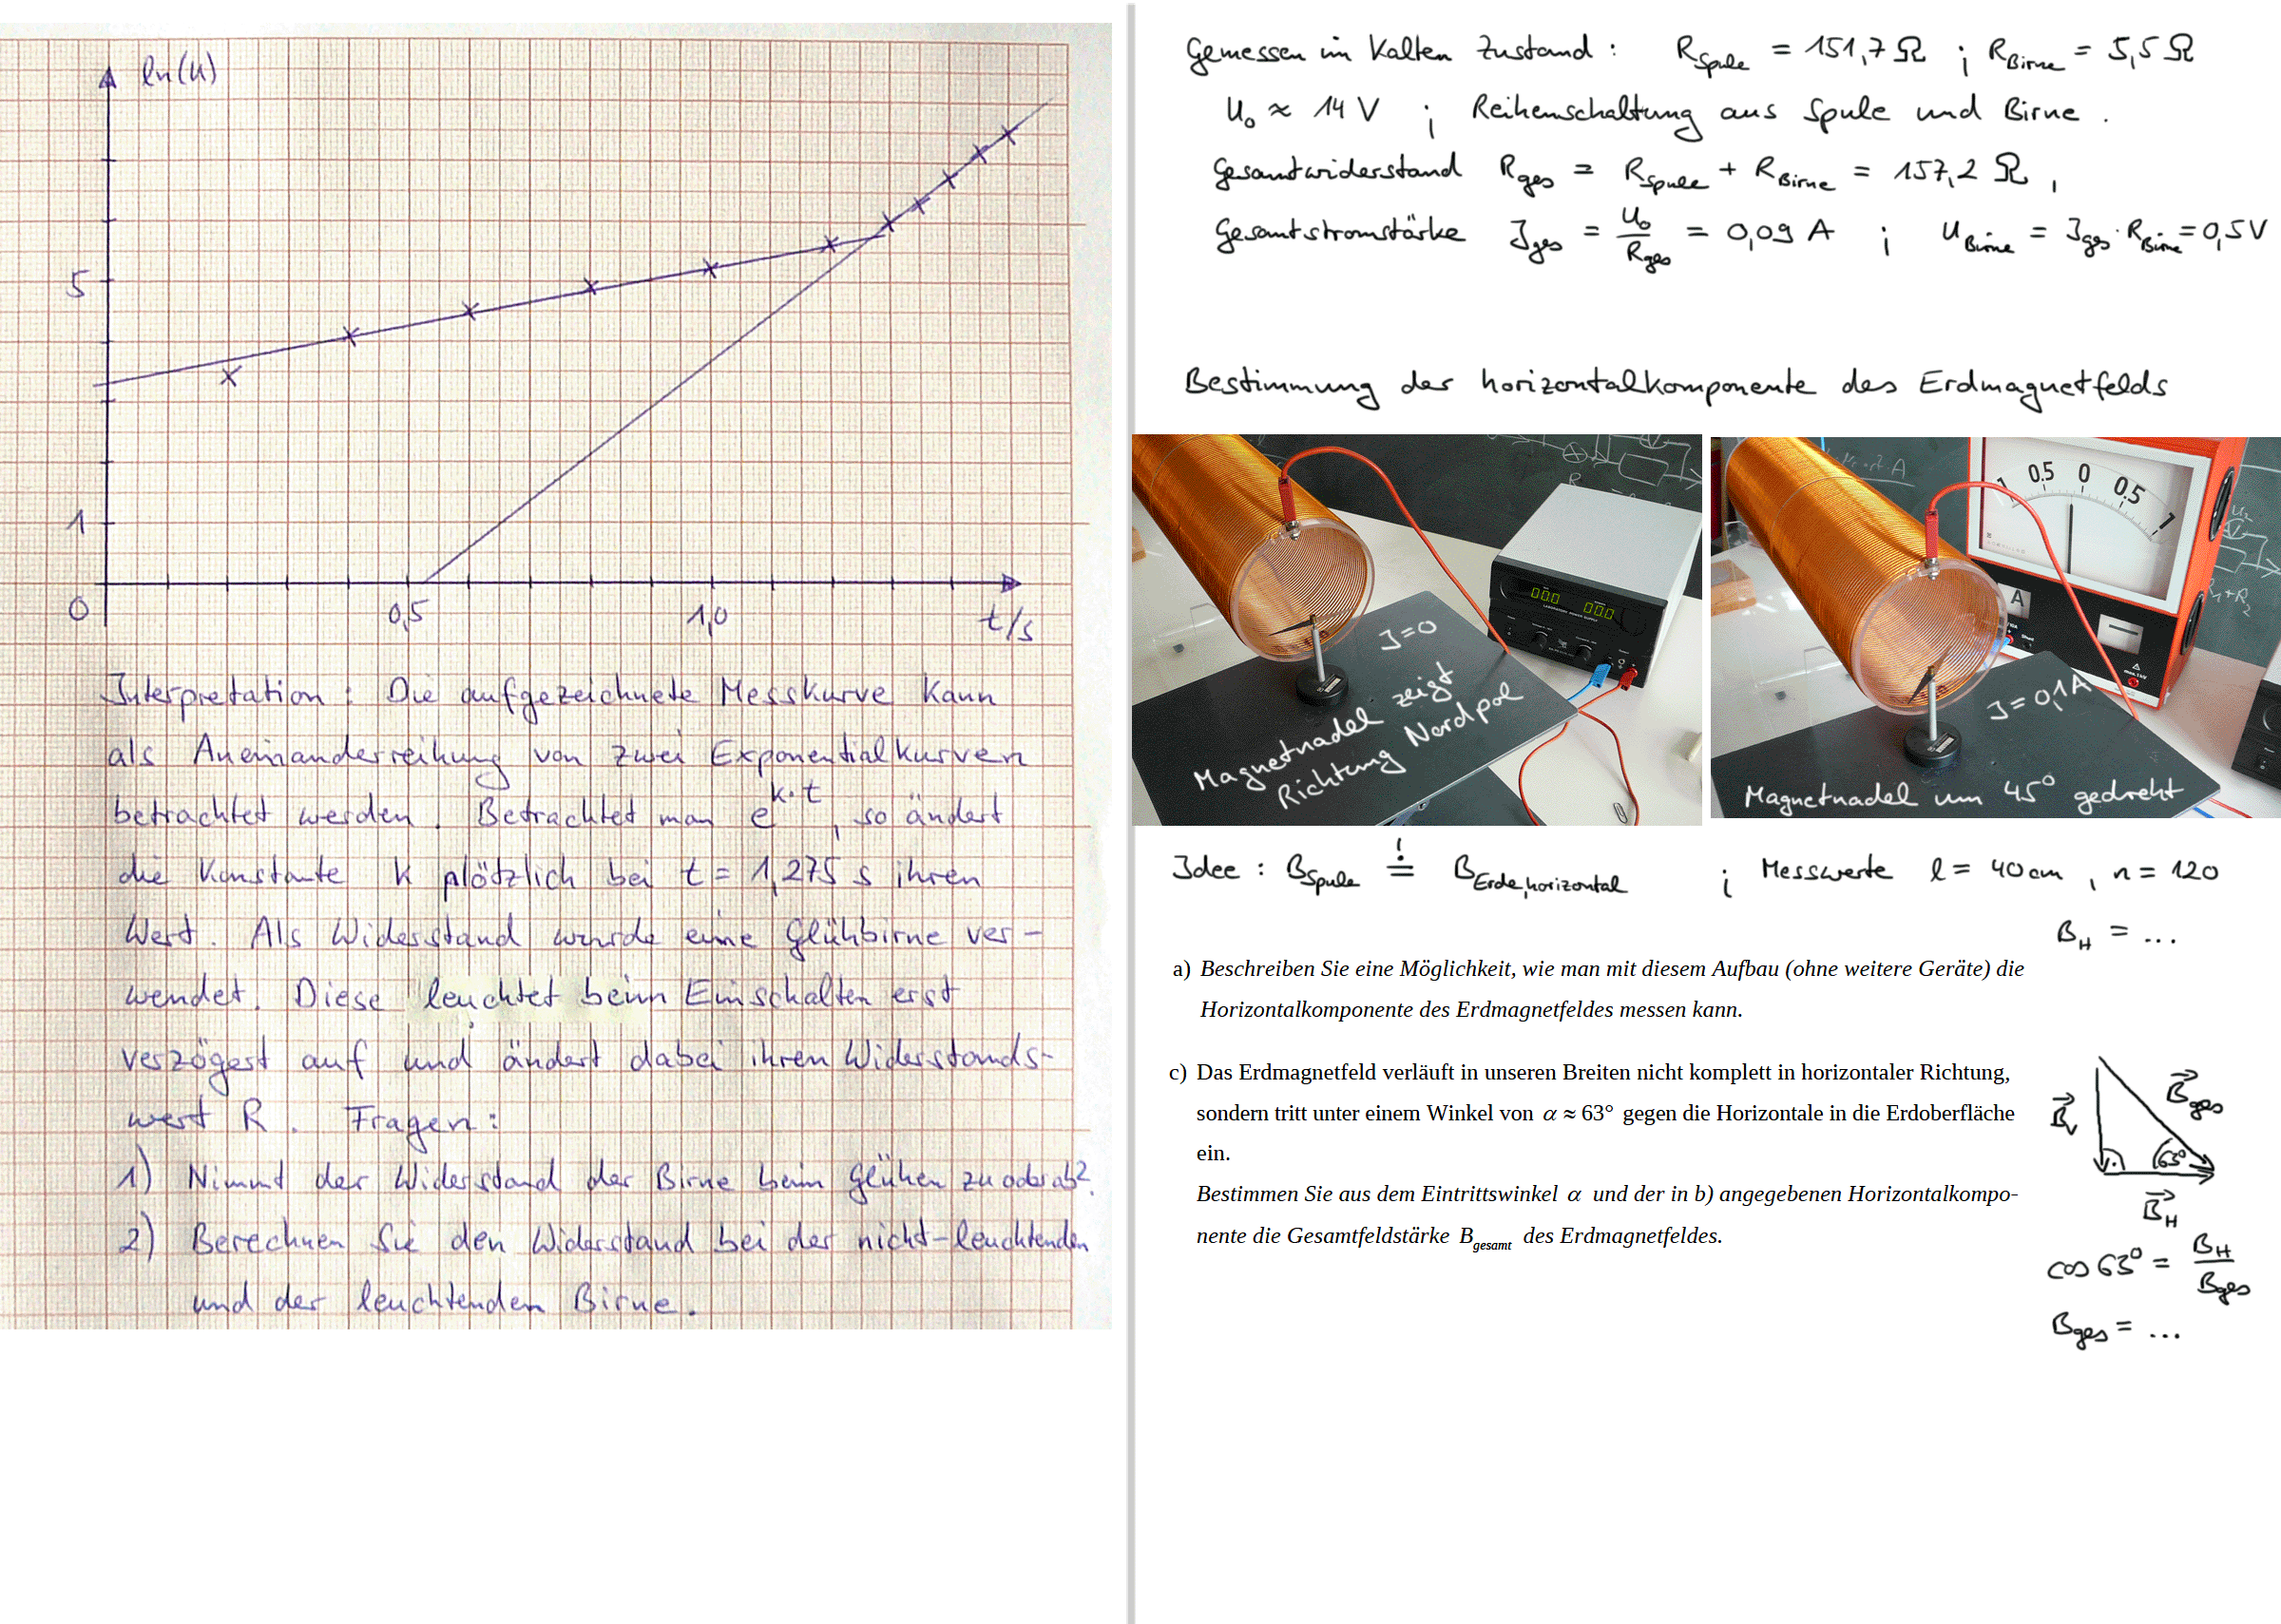 ln(u)
5
1
0
0,5
1,0
t/s
Interpretation: Die aufgezeichnete Messkurve kann
als Aneinanderreihung von zwei Exponentialkurven
betrachtet werden. Betrachtet man e^{k·t}, so ändert
die Konstante k plötzlich bei t = 1,275 s ihren
Wert. Als Widerstand wurde eine Glühbirne ver-
wendet. Diese leuchtet beim Einschalten erst
verzögert auf und ändert dabei ihren Widerstands-
wert R. Fragen:
1) Nimmt der Widerstand der Birne beim Glühen zu oder ab?
2) Berechnen Sie den Widerstand bei der nicht-leuchtenden
und der leuchtenden Birne.
Gemessen im kalten Zustand: R_Spule = 151,7 Ω ; R_Birne = 5,5 Ω
U_0 ≈ 14 V ; Reihenschaltung aus Spule und Birne.
Gesamtwiderstand R_ges = R_Spule + R_Birne = 157,2 Ω,
Gesamtstromstärke I_ges = U_0/R_ges = 0,09 A ; U_Birne = I_ges · R_Birne = 0,5 V
Bestimmung der Horizontalkomponente des Erdmagnetfelds
00.0 00.0
I=0
Magnetnadel zeigt
Richtung Nordpol
1 0.5 0 0.5 1
A
I=0,1A
Magnetnadel um 45° gedreht
Idee: B_Spule ≐ B_Erde,horizontal ; Messwerte l = 40 cm, n = 120
B_H = ...
a) Beschreiben Sie eine Möglichkeit, wie man mit diesem Aufbau (ohne weitere Geräte) die
Horizontalkomponente des Erdmagnetfeldes messen kann.
c) Das Erdmagnetfeld verläuft in unseren Breiten nicht komplett in horizontaler Richtung,
sondern tritt unter einem Winkel von α ≈ 63° gegen die Horizontale in die Erdoberfläche
ein.
Bestimmen Sie aus dem Eintrittswinkel α und der in b) angegebenen Horizontalkompo-
nente die Gesamtfeldstärke B_gesamt des Erdmagnetfeldes.
B_V
B_ges
63°
B_H
cos 63° = B_H/B_ges
B_ges = ...